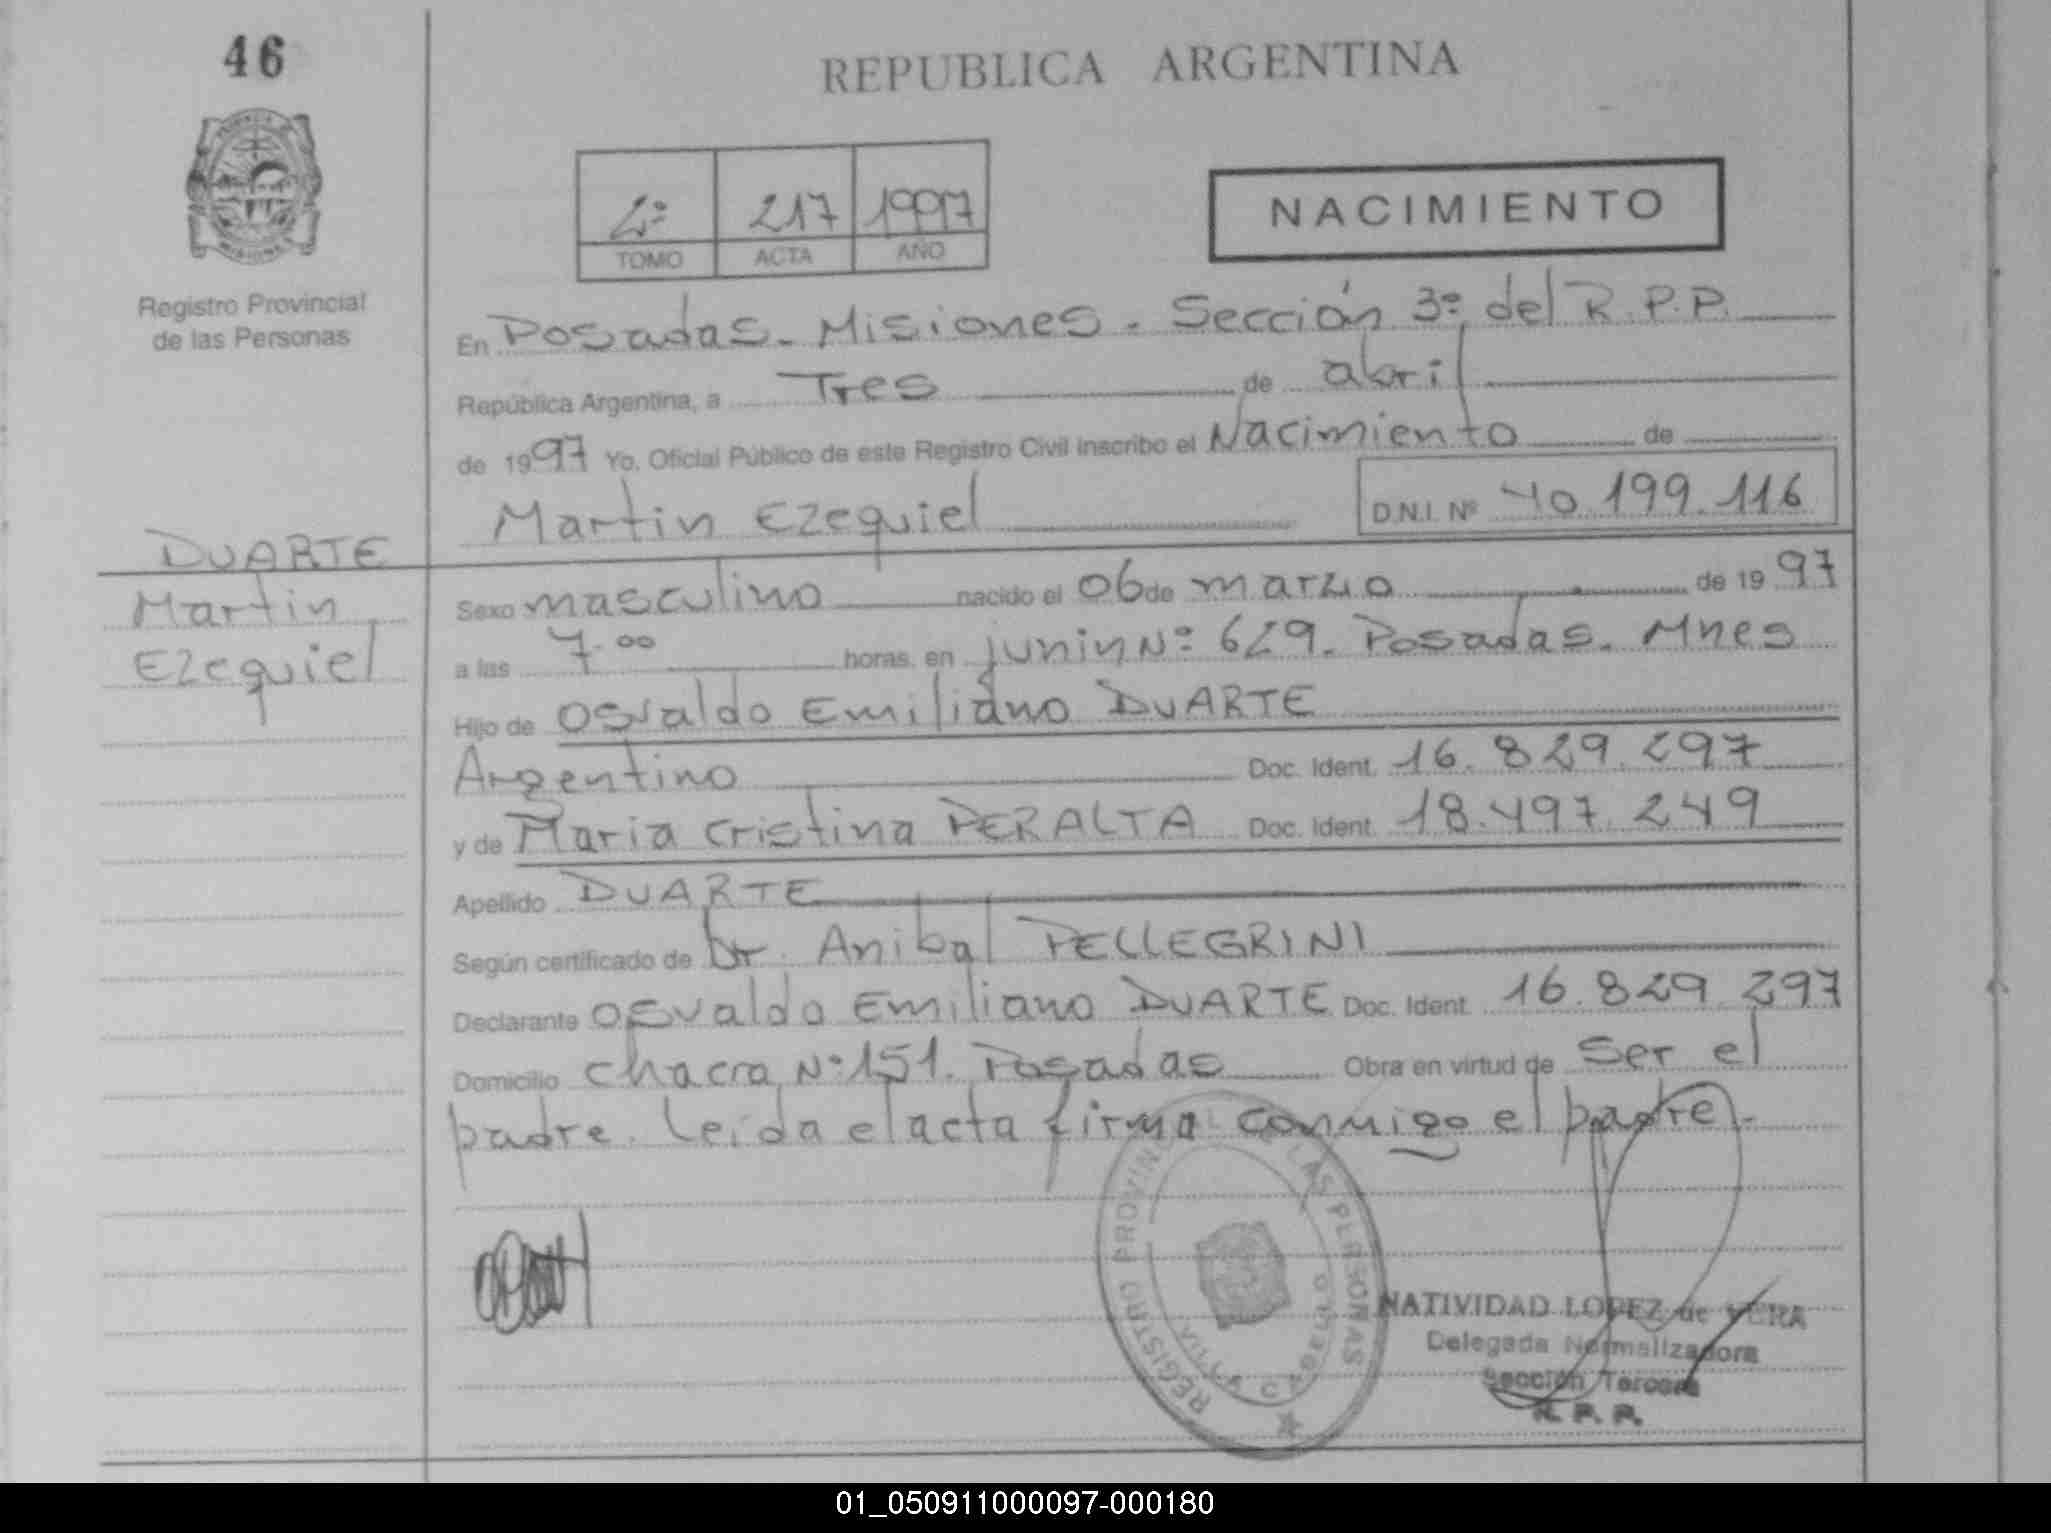 46
REPUBLICA ARGENTINA
2º 217 1997
TOMO ACTA AÑO
NACIMIENTO
Registro Provincial
de las Personas
En Posadas - Misiones - Sección 3º del R.P.P.
República Argentina, a Tres de abril
de 1997 Yo, Oficial Público de este Registro Civil Inscribo el Nacimiento de
Martin Ezequiel D.N.I. Nº 40.199.116
DUARTE
Martin
Ezequiel
Sexo masculino nacido el 06 de marzo de 1997
a las 7.00 horas. en junin Nº: 629. Posadas. Mnes
Hijo de Osvaldo Emiliano DUARTE
Argentino Doc. Ident. 16.829.297
y de Maria Cristina PERALTA Doc. Ident. 18.497.249
Apellido DUARTE
Según certificado de Dr. Anibal PELLEGRINI
Declarante Osvaldo Emiliano DUARTE Doc. Ident. 16.829.297
Domicilio Chacra Nº: 151. Posadas Obra en virtud de Ser el
padre. Leída el acta firma conmigo el padre.-
REGISTRO PROVINCIAL LAS PERSONAS
VILLA CABELLO
NATIVIDAD LOPEZ de VERA
Delegada Normalizadora
Sección Tercera
R. P. P.
01_050911000097-000180